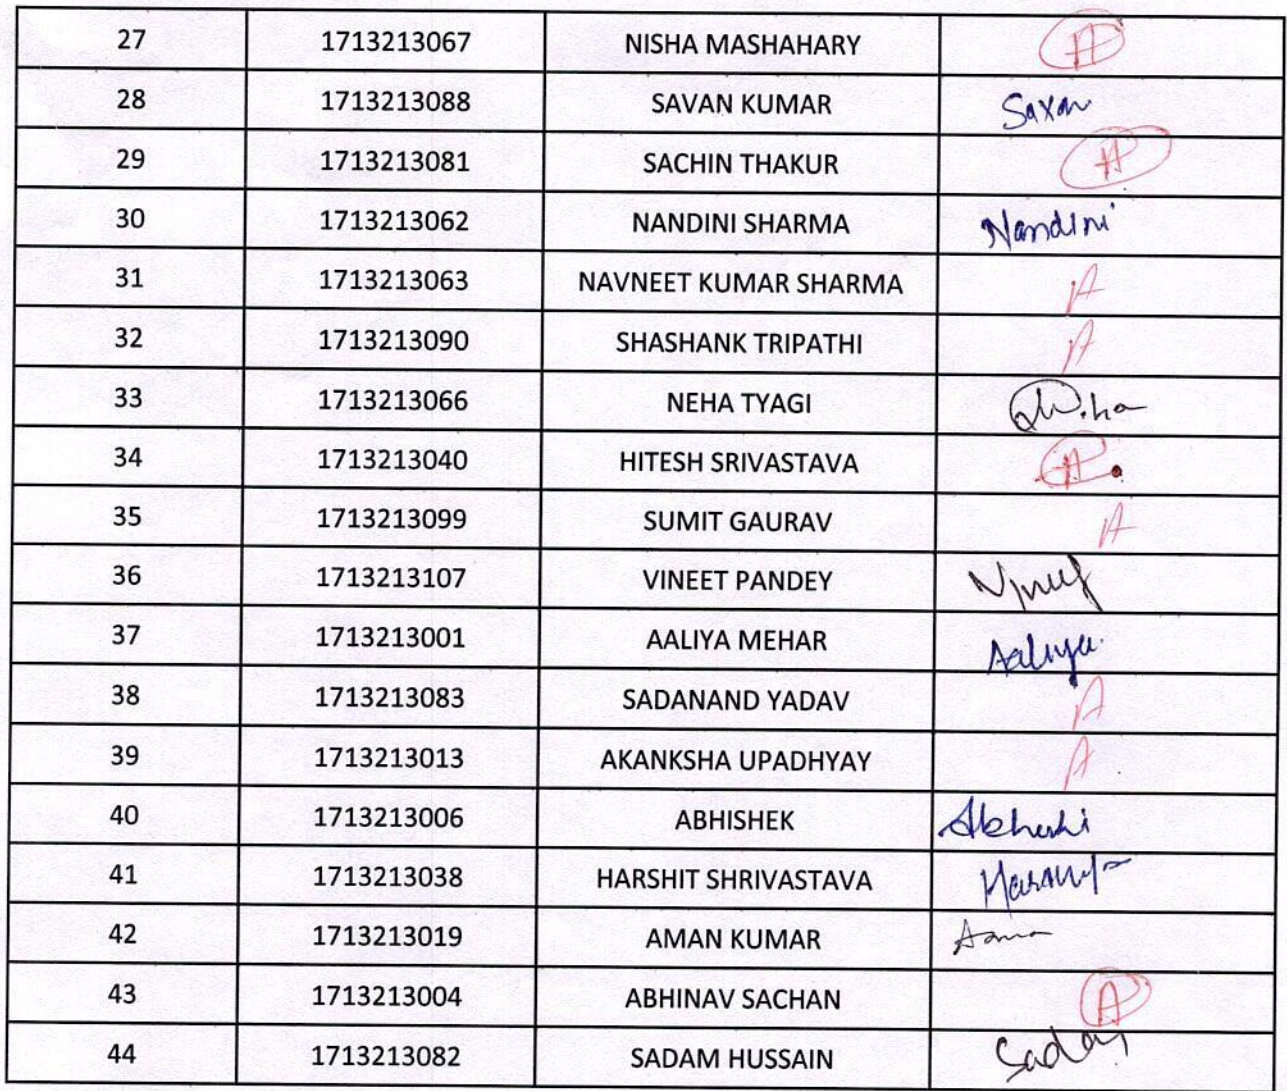 27 1713213067 NISHA MASHAHARY A
28 1713213088 SAVAN KUMAR Savan
29 1713213081 SACHIN THAKUR A
30 1713213062 NANDINI SHARMA Nandini
31 1713213063 NAVNEET KUMAR SHARMA A
32 1713213090 SHASHANK TRIPATHI A
33 1713213066 NEHA TYAGI
34 1713213040 HITESH SRIVASTAVA A
35 1713213099 SUMIT GAURAV A
36 1713213107 VINEET PANDEY
37 1713213001 AALIYA MEHAR Aaliya
38 1713213083 SADANAND YADAV A
39 1713213013 AKANKSHA UPADHYAY A
40 1713213006 ABHISHEK
41 1713213038 HARSHIT SHRIVASTAVA
42 1713213019 AMAN KUMAR
43 1713213004 ABHINAV SACHAN A
44 1713213082 SADAM HUSSAIN